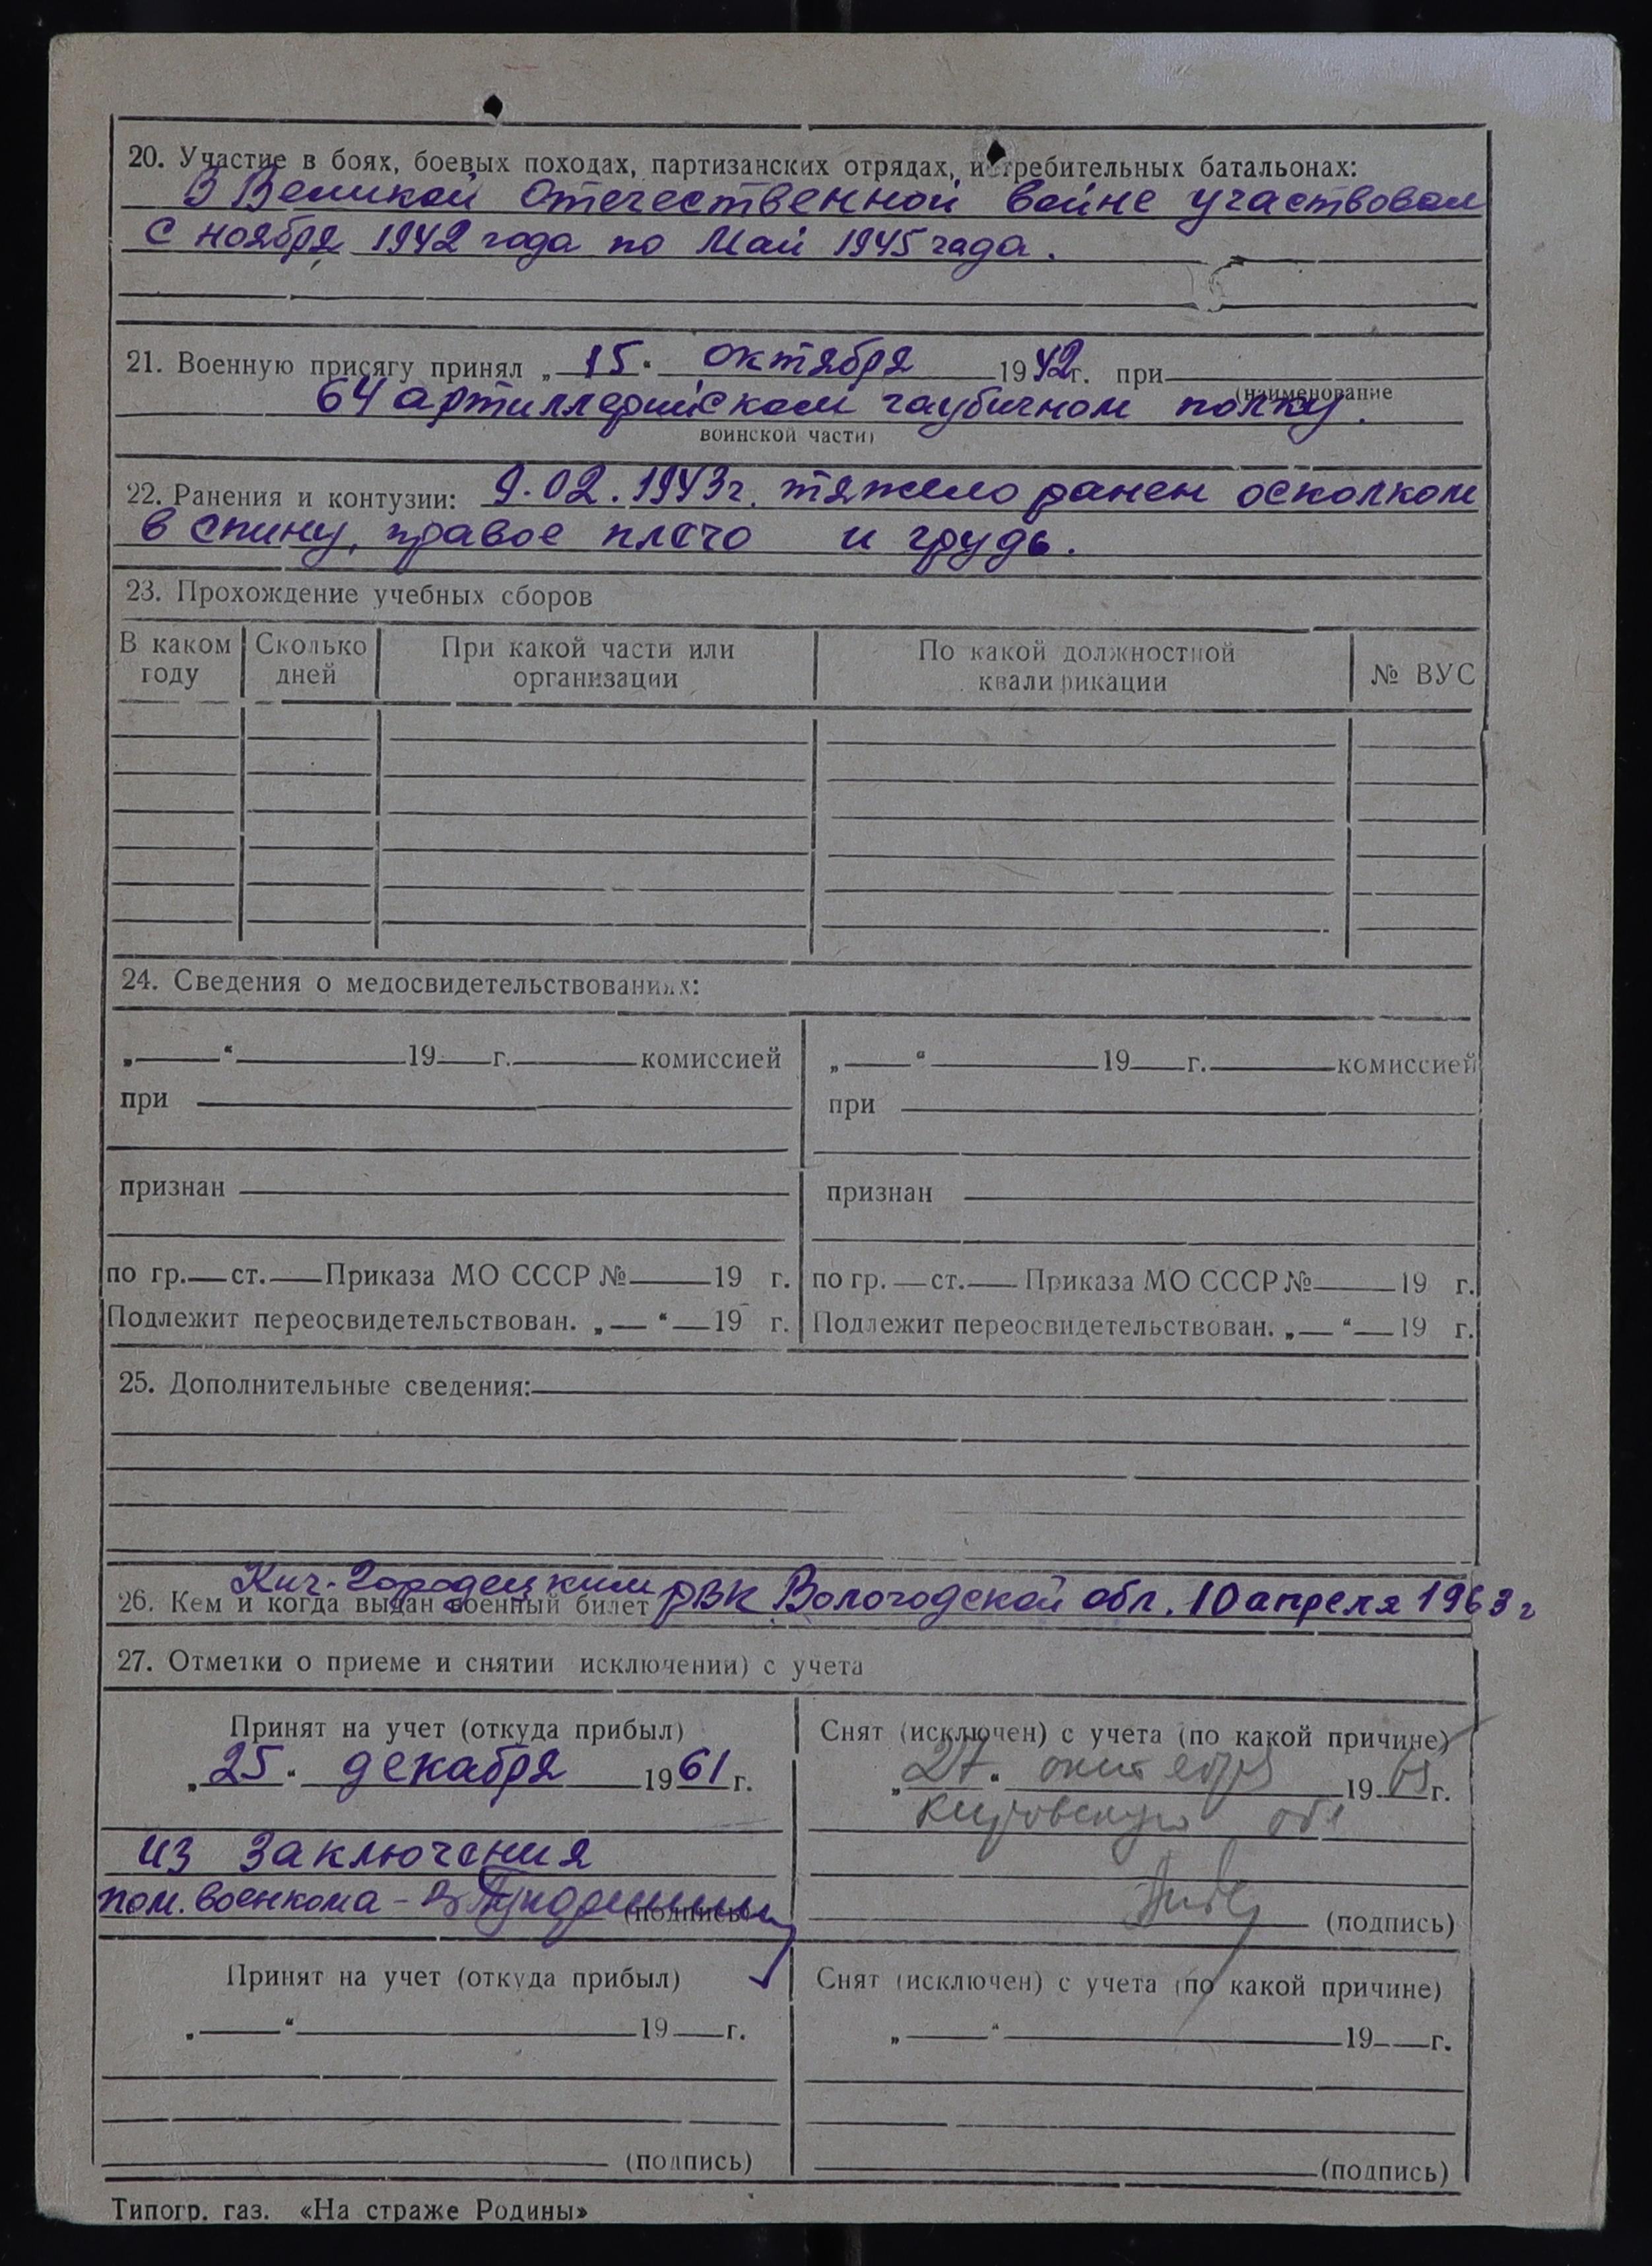 20. Участие в боях, боевых походах, партизанских отрядах, истребительных батальонах:
В Великой Отечественной войне участвовал
с ноября 1942 года по Май 1945 года.
21. Военную присягу принял „15“ октября 1942 г. при
(наименование
64 артиллерийском гаубичном полку.
воинской части)
22. Ранения и контузии: 9.02.1943г. тяжело ранен осколком
в спину, правое плечо и грудь.
23. Прохождение учебных сборов
В каком году Сколько дней При какой части или организации По какой должностной квалификации № ВУС
24. Сведения о медосвидетельствованиях:
„ “ 19 г. комиссией
при
признан
по гр. ст. Приказа МО СССР № 19 г.
Подлежит переосвидетельствован. „ “ 19 г.
„ “ 19 г. комиссией
при
признан
по гр. ст. Приказа МО СССР № 19 г.
Подлежит переосвидетельствован. „ “ 19 г.
25. Дополнительные сведения:
26. Кем и когда выдан военный билет Кич-Городецким РВК Вологодской обл. 10 апреля 1963 г
27. Отметки о приеме и снятии исключении) с учета
Принят на учет (откуда прибыл)
„25“ декабря 1961 г.
из заключения
пом. военкома -
(подпись)
Снят (исключен) с учета (по какой причине)
„27“ октября 19 г.
Кировскую обл
(подпись)
Принят на учет (откуда прибыл)
„ “ 19 г.
(подпись)
Снят (исключен) с учета (по какой причине)
„ “ 19 г.
(подпись)
Типогр. газ. «На страже Родины»